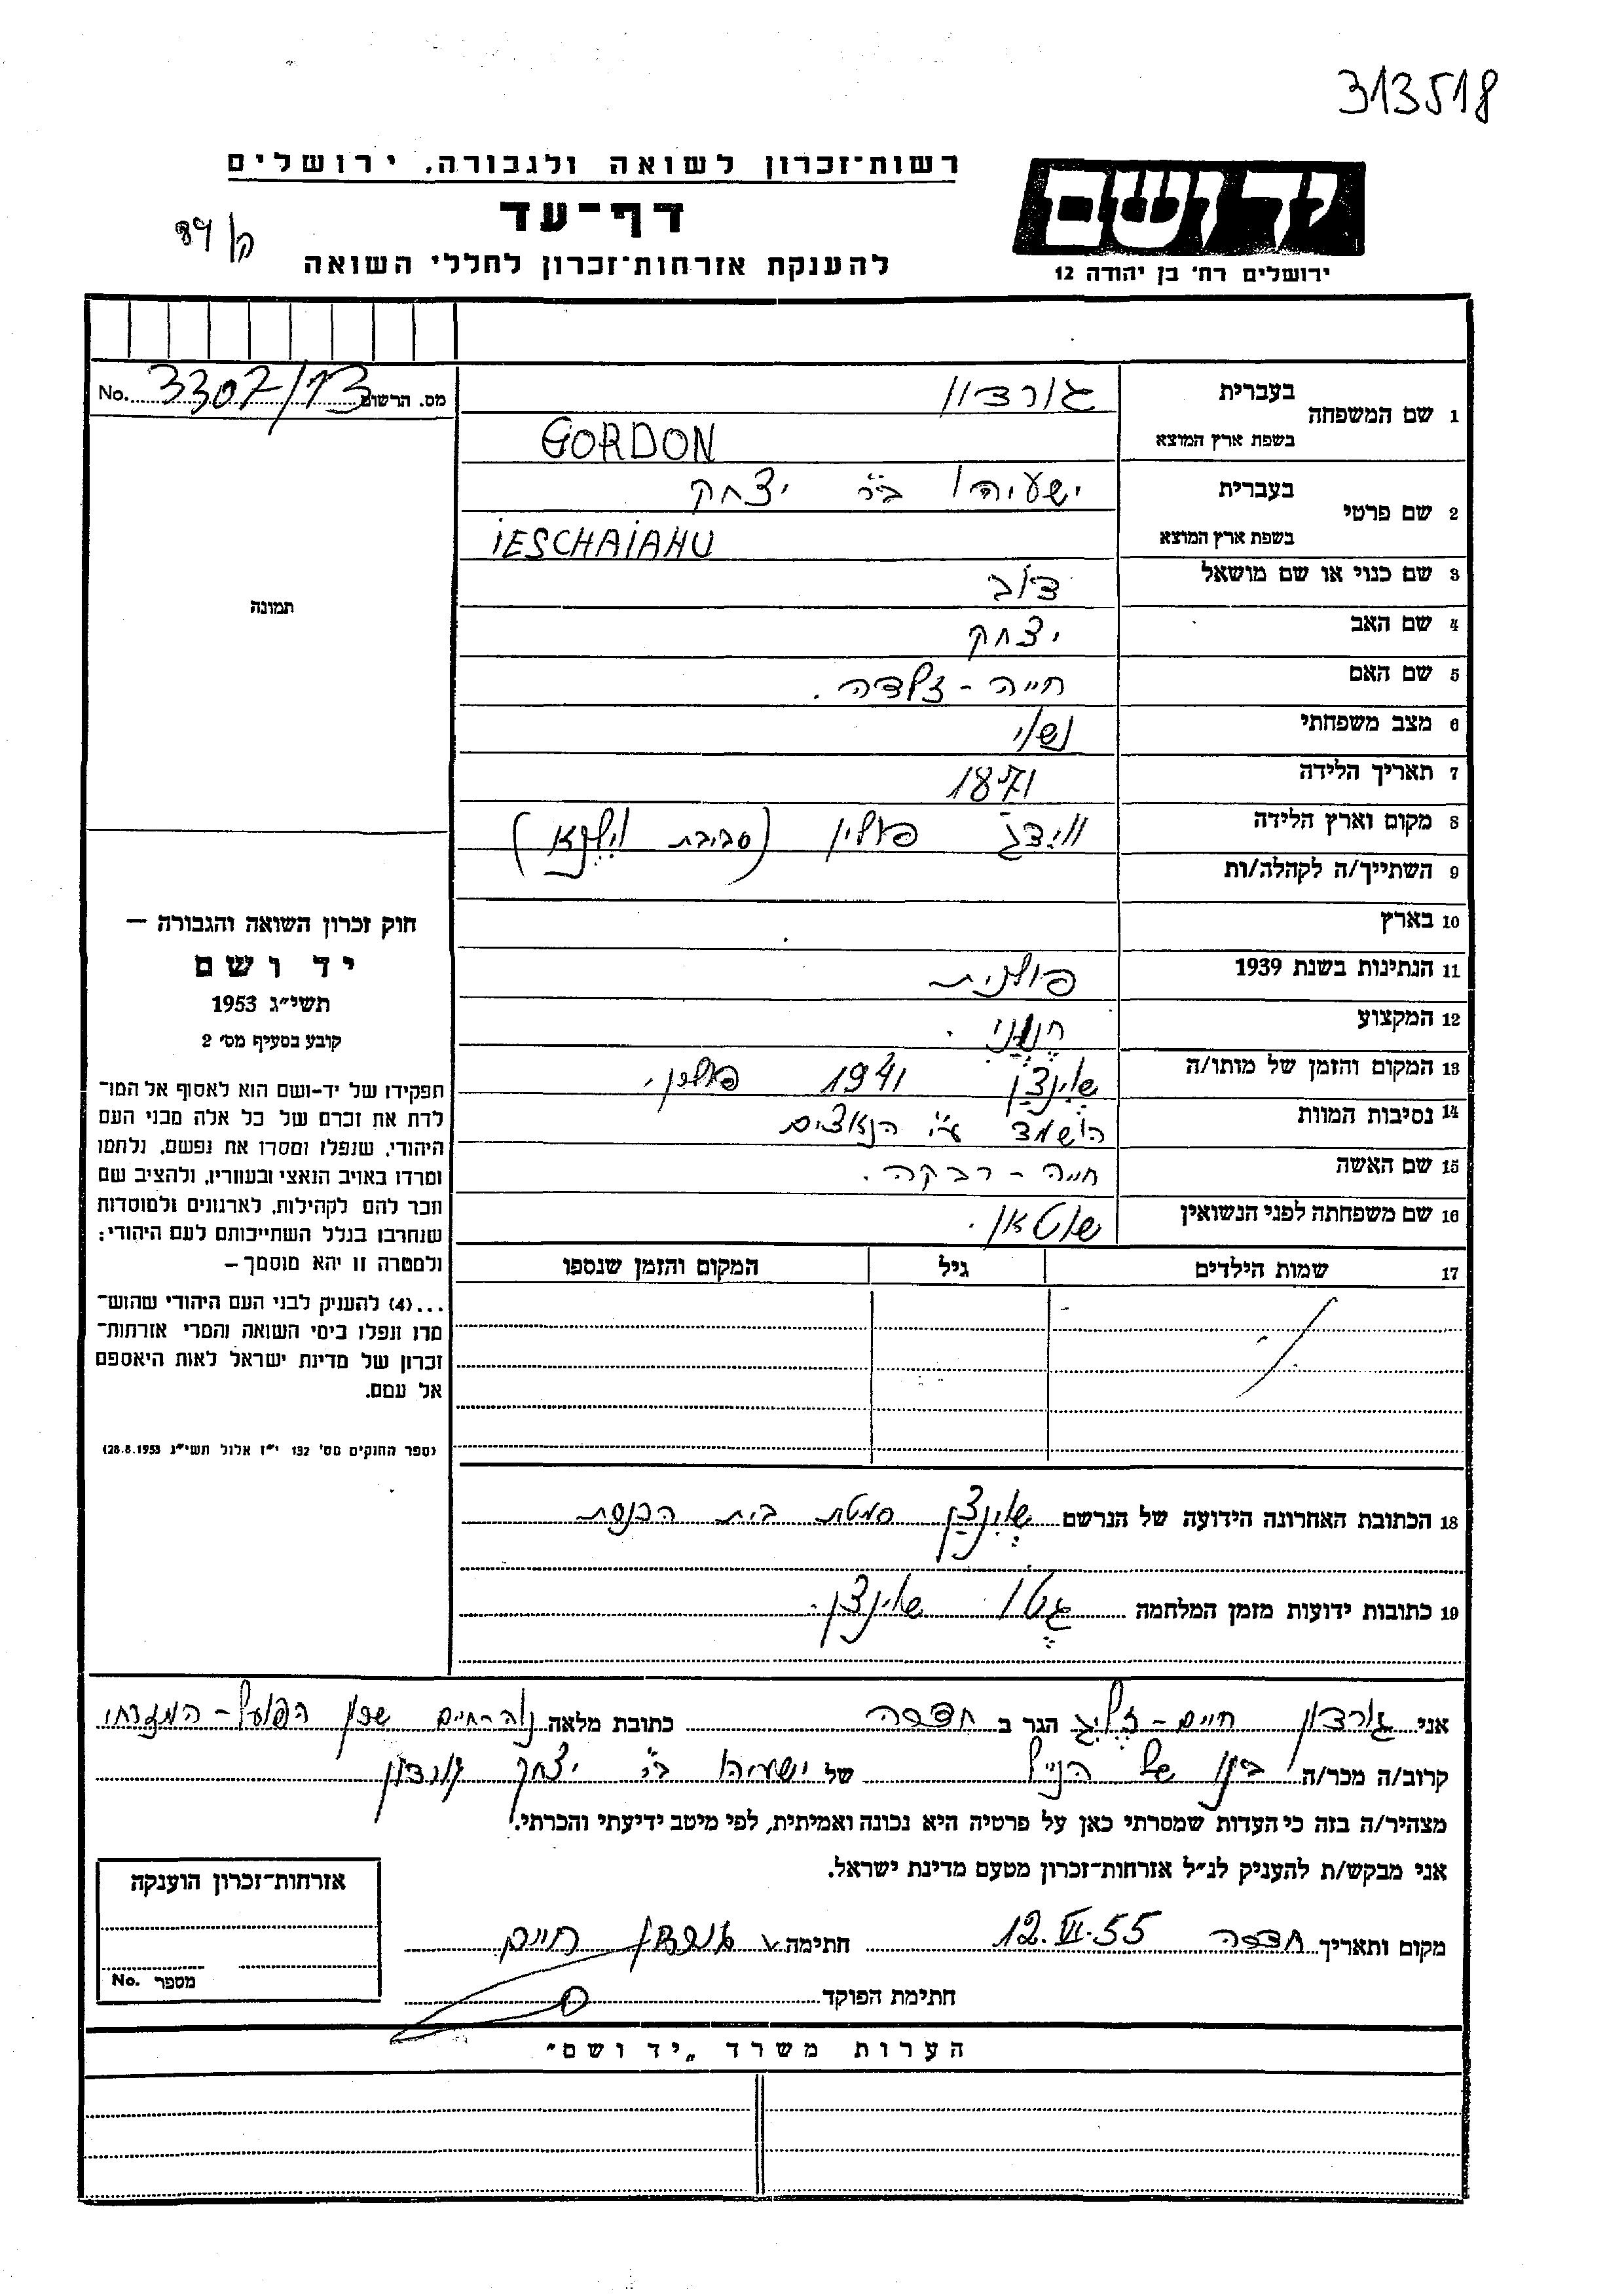 313518
רשות־זכרון לשואה ולגבורה, ירושלים
יד ושם
דף־עד
ק/ 89
להענקת אזרחות־זכרון לחללי השואה
ירושלים רח׳ בן יהודה 12
מס. הרשום 3307/13 No.
1 שם המשפחה בעברית גורדון
בשפת ארץ המוצא GORDON
2 שם פרטי בעברית ישעיהו ב״ר יצחק
בשפת ארץ המוצא IESCHAIAHU
3 שם כנוי או שם מושאל דוב
4 שם האב יצחק
5 שם האם חייה - זלדה.
6 מצב משפחתי נשוי
7 תאריך הלידה 1871
8 מקום וארץ הלידה ווידז פולין (סביבת ווילנא)
9 השתייך/ה לקהלה/ות
10 בארץ
11 הנתינות בשנת 1939 פולנית
12 המקצוע חנווני.
13 המקום והזמן של מותו/ה שווינצן 1941 פולין.
14 נסיבות המוות הושמד ע״י הנאצים
15 שם האשה חייה - רבקה.
16 שם משפחתה לפני הנשואין
17 שמות הילדים גיל המקום והזמן שנספו
תמונה
חוק זכרון השואה והגבורה —
יד ושם
תשי״ג 1953
קובע בסעיף מס׳ 2
תפקידו של יד-ושם הוא לאסוף אל המו־
לדת את זכרם של כל אלה מבני העם
היהודי, שנפלו ומסרו את נפשם, נלחמו
ומרדו באויב הנאצי ובעוזריו, ולהציב שם
וזכר להם לקהילות, לארגונים ולמוסדות
שנחרבו בגלל השתייכותם לעם היהודי;
ולמטרה זו יהא מוסמך —
...(4) להעניק לבני העם היהודי שהוש־
מדו ונפלו בימי השואה והמרי אזרחות־
זכרון של מדינת ישראל לאות היאספם
אל עמם.
(ספר החוקים מס׳ 132 י״ז אלול תשי״ג 28.8.1953)
18 הכתובת האחרונה הידועה של הנרשם שווינצן סמטת בית הכנסת
19 כתובות ידועות מזמן המלחמה גטו שווינצן.
אני גורדון חיים - זליג הגר ב חדרה כתובת מלאה נוה-חיים שכון הפועל - המזרחי
קרוב/ה מכר/ה בנו של הנ״ל של ישעיהו ב״ר יצחק גורדון
מצהיר/ה בזה כי העדות שמסרתי כאן על פרטיה היא נכונה ואמיתית, לפי מיטב ידיעתי והכרתי.
אני מבקש/ת להעניק לנ״ל אזרחות־זכרון מטעם מדינת ישראל.
מקום ותאריך חדרה 12.VI.55 חתימה גורדון חיים
חתימת הפוקד
אזרחות־זכרון הוענקה
מספר No.
הערות משרד „יד ושם״